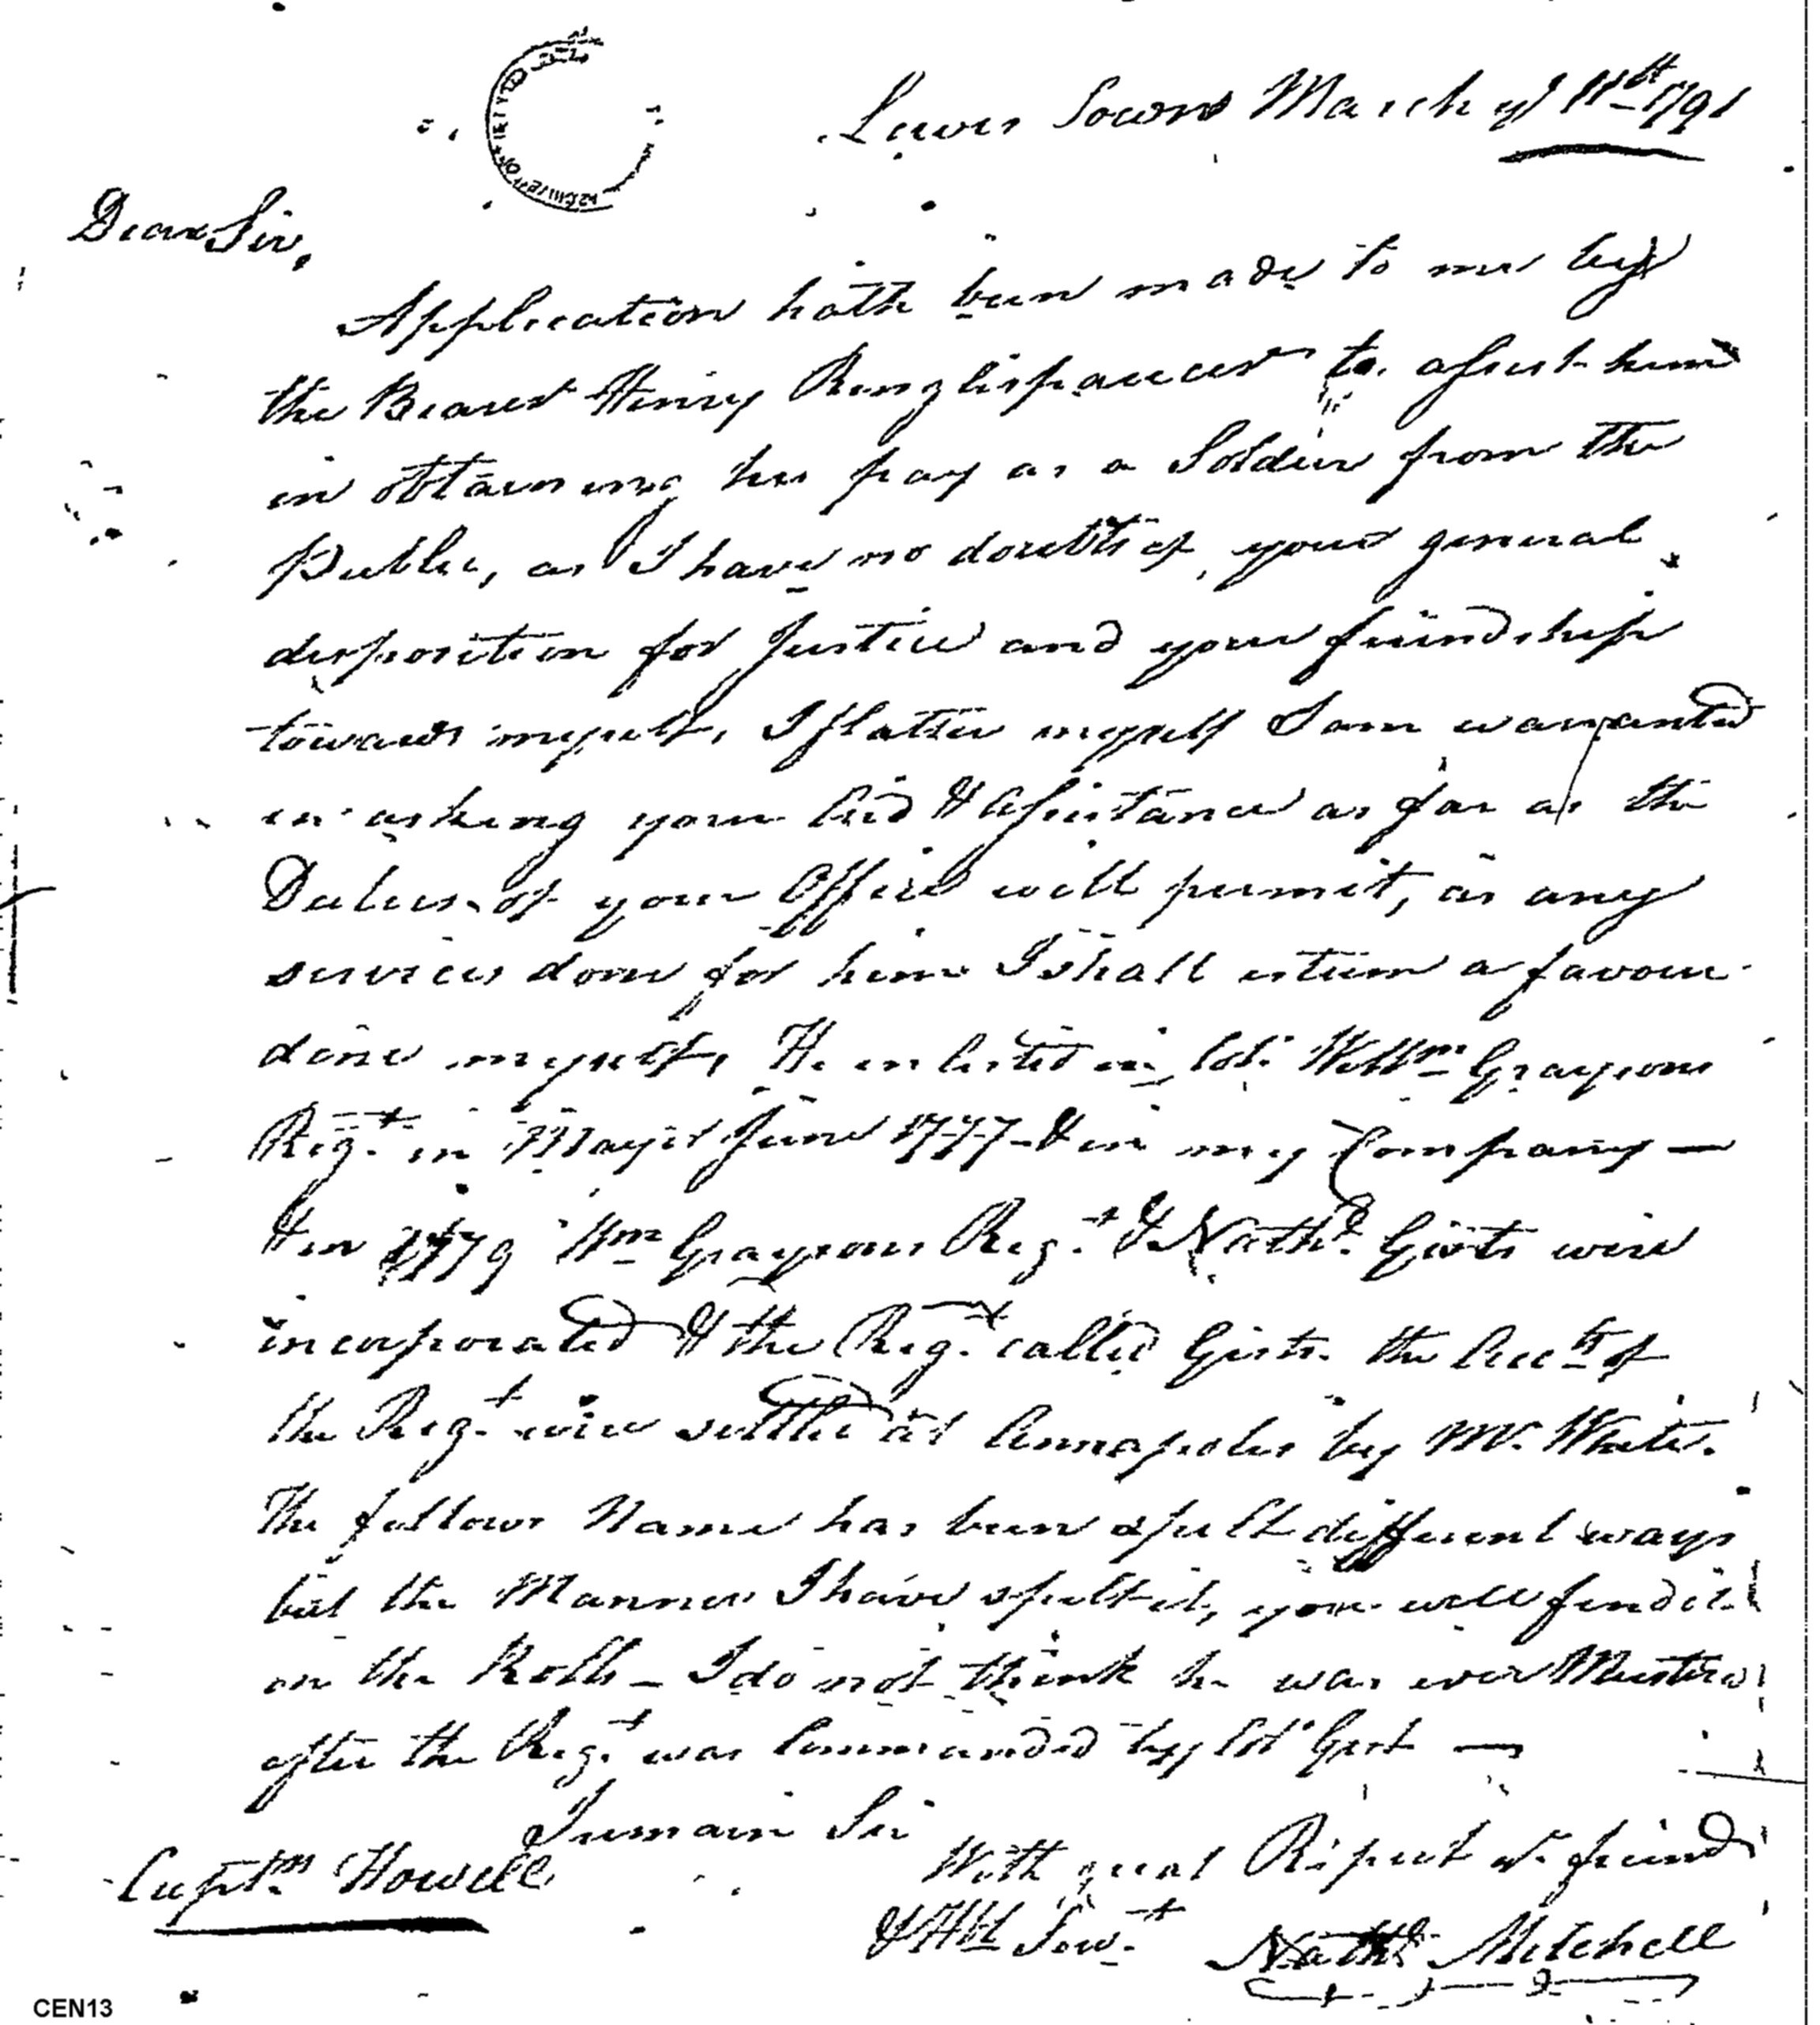 Lewis Town March ye 11th 1791
Dear Sir,
Application hath been made to me by
the Bearer Henry Ringlispaucer to assist him
in obtaining his pay as a Soldier from the
Public, as I have no doubts of your general
disposition for Justice and your friendship
towards myself, I flatter myself I am warranted
in asking your Aid & Assistance as far as the
Duties of your Office will permit, as any
services done for him I shall esteem a favour
done myself, He inlisted in Col. Willm Graysons
Regt. in May or June 1777 & in my Company —
& in 1779 Wm Graysons Regt. & Nathl. Gists were
incorporated & the Regt. called Gists. the Accts of
the Regt. were settled at Annapolis by Mr. White.
The fellows Name has been spelt different ways
but the Manner I have spelt it, you will find it
on the Rolls — I do not think he was ever Mustered
after the Regt. was Commanded by Col Gist —
I remain Sir
With great Respect Yr. friend
Captn. Howell
& Hbl Servt.
Nathl Mitchell
CEN13